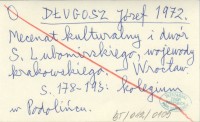 DŁUGOSZ Józef 1972.
Mecenat kulturalny i dwór
S. Lubomirskiego, wojewody
krakowskiego. Wrocław.
s. 178-193: kolegium
w Podolińcu.